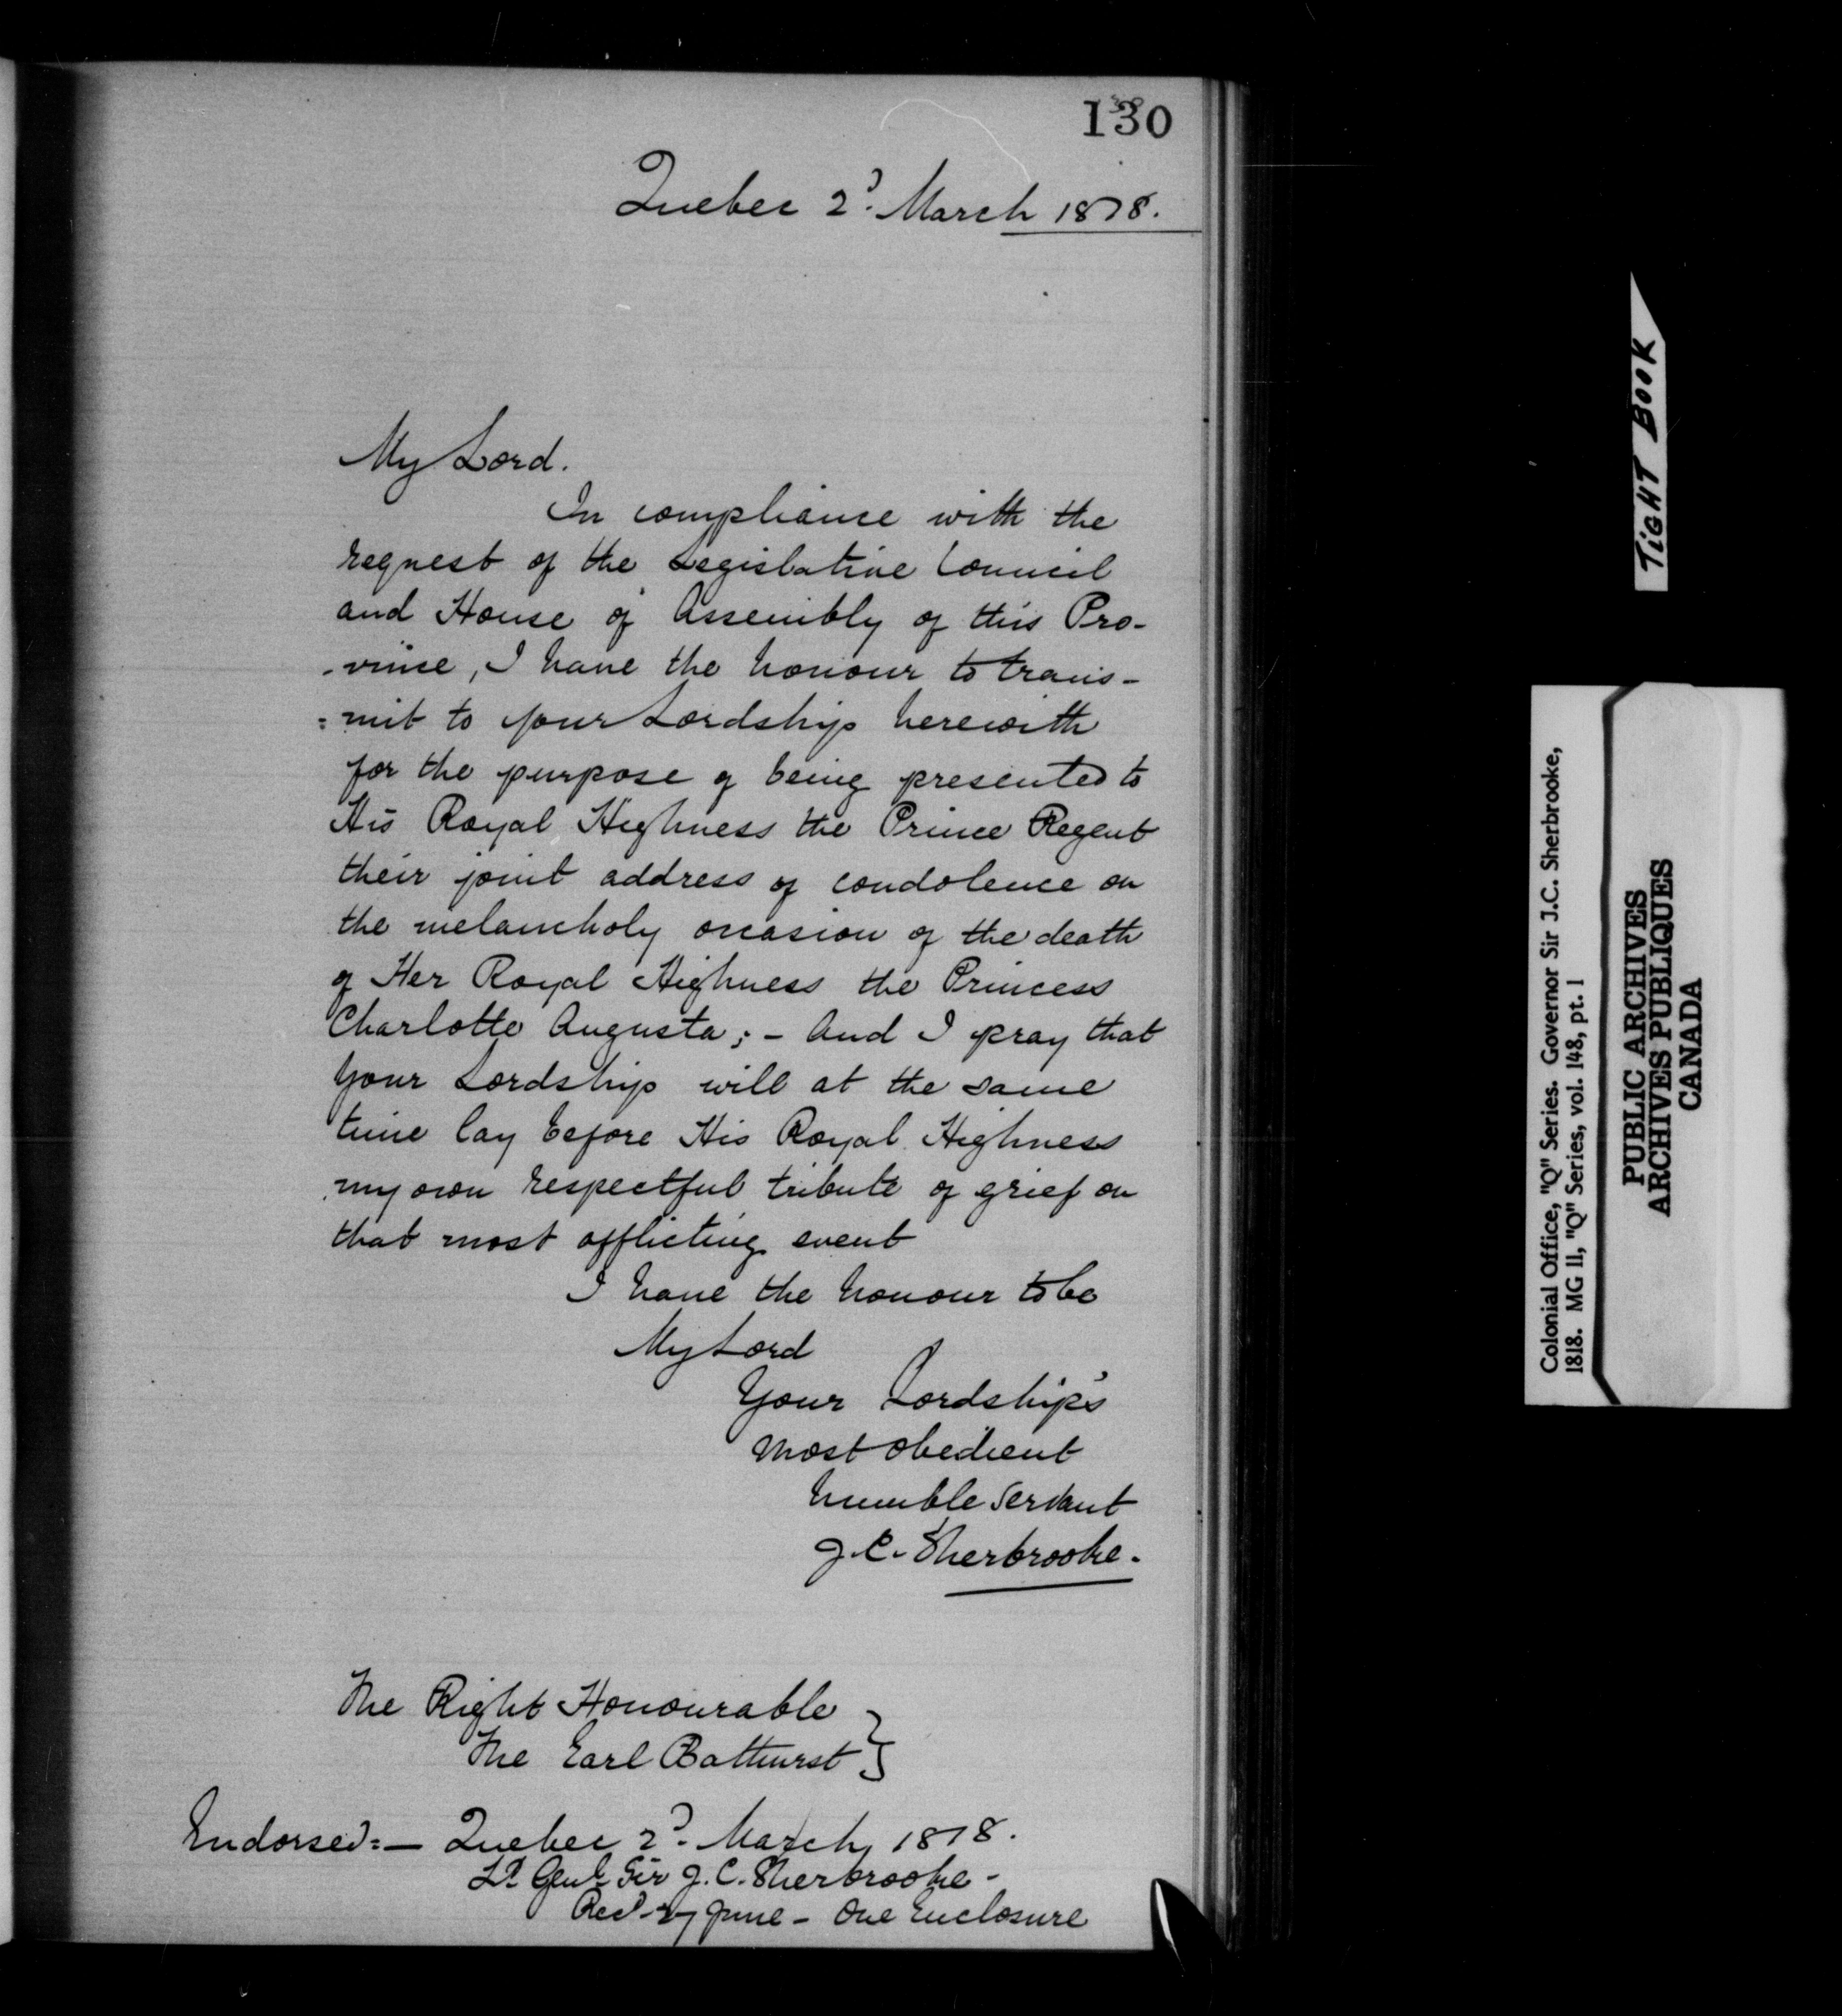 130
Quebec 2d. March 1818.
My Lord.
In compliance with the
request of the Legislative Council
and House of Assembly of this Pro-
-vince, I have the honour to trans-
=mit to your Lordship herewith
for the purpose of being presented to
His Royal Highness the Prince Regent
their joint address of condolence on
the melancholy occasion of the death
of Her Royal Highness the Princess
Charlotte Augusta; - And I pray that
Your Lordship will at the same
time lay before His Royal Highness
my own respectful tribute of grief on
that most afflicting event
I have the honour to be
My Lord
Your Lordship's
most obedient
humble Servant
J. C. Sherbrooke.
The Right Honourable
The Earl Bathurst }
Endorsed:- Quebec 2d. March 1818.
Lt. Genl. Sir J. C. Sherbrooke -
Recd. 27 June - One Enclosure
TIGHT BOOK
Colonial Office, "Q" Series. Governor Sir J.C. Sherbrooke,
1818. MG 11, "Q" Series, vol. 148, pt. 1
PUBLIC ARCHIVES
ARCHIVES PUBLIQUES
CANADA